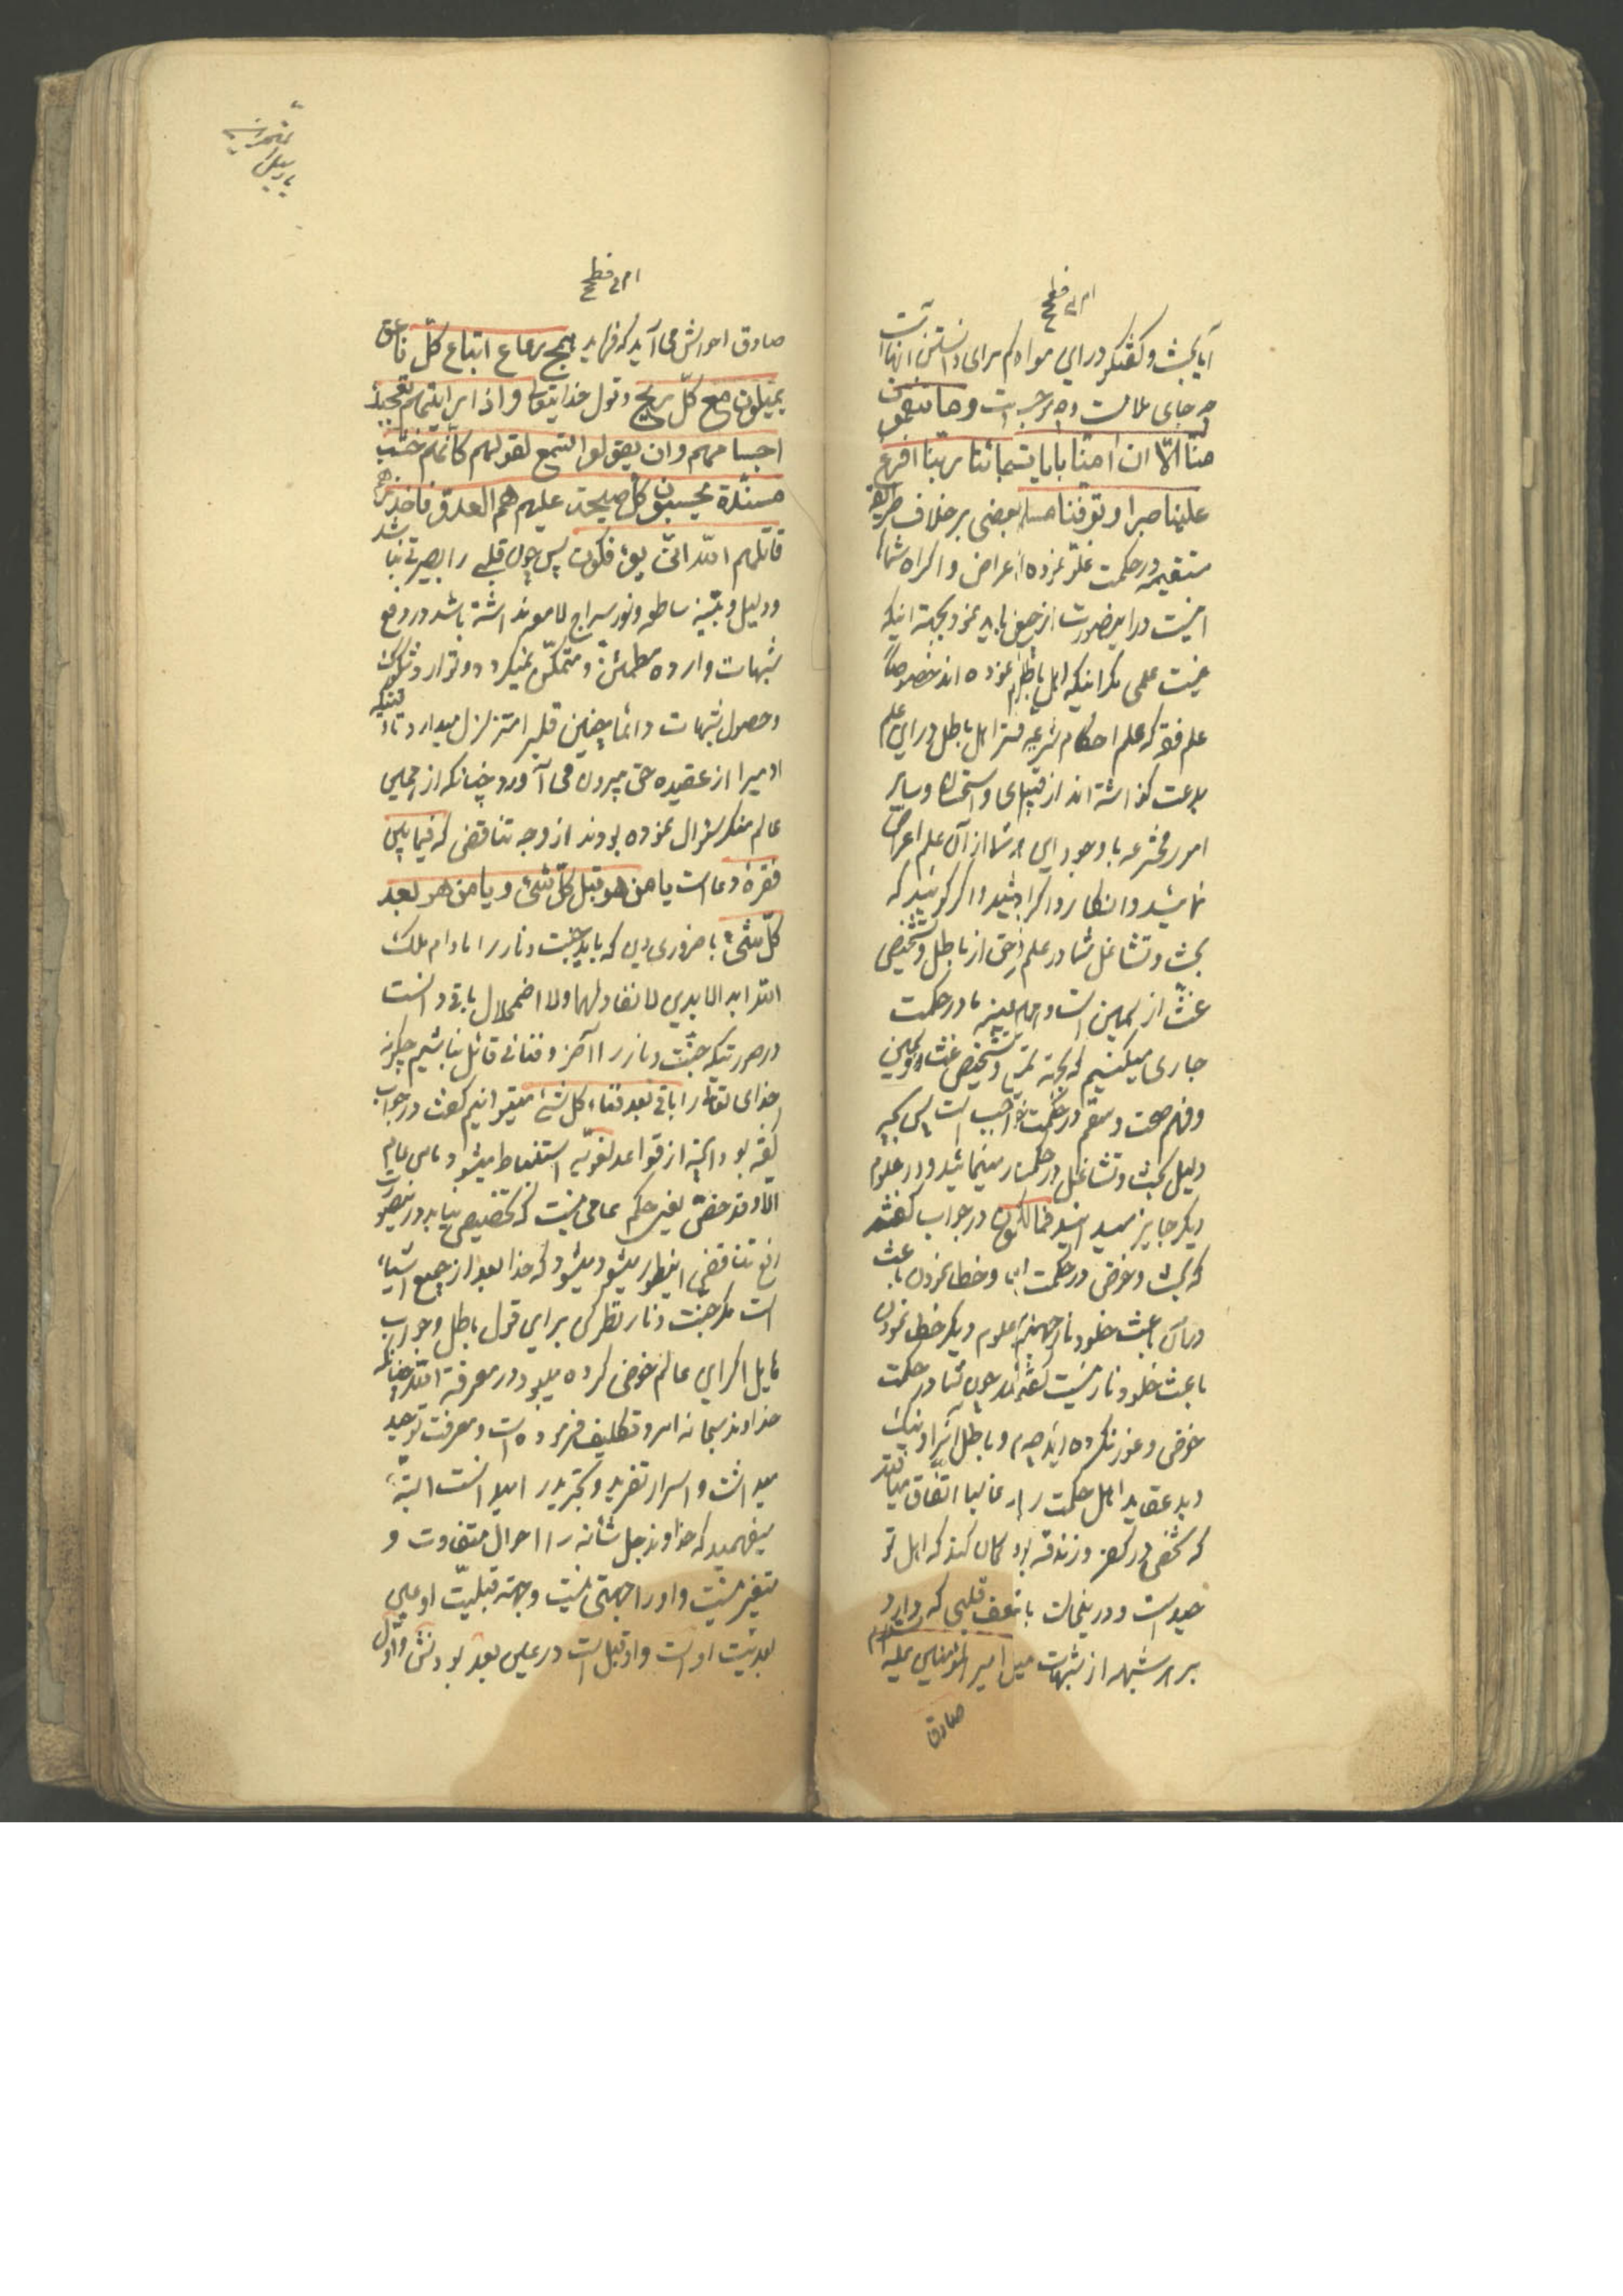 آیا بحث و گفتگو در این مواد کم برای دانستن انهاات
چه جای ملامت وچه وجب است وما تنقمون
منّا الّا ان امنّا بایات ربّنا لمّا جائتنا ربّنا افرغ
علینا صبرا وتوفّنا مسلمین بعضی بر خلاف طریقه
مستقیمه در حکمت غلوّ نموده اعراض و اکراه شما
نیست در اینصورت از جمیع باید نمود بجهة اینکه
نیست علمی مگر اینکه اهل باطل نموده اند خصوصاً
علم فقه که علم احکام شرعیه است اهل باطل در این علم
بدعت گذاشته اند از قیاس و استحسان و سایر
امور مخترعه با وجود این شما از آن علم اعراض
نمیشید و انکار و اکراه نمیشید و اگر گویند که
بحث و تشاغل شما در علم حق از باطل و تشخیص
غث از سمین است و ما هم بعینه در حکمت
جاری میکنیم که بجهة تمیز و تشخیص غث و سمین
و فهم صحت و سقم در حکمت واجب است پس بچه
دلیل بحث و تشاغل در حکمت را منع مینمائید و در علوم
دیگر جایز میدانید فما لکم در جواب گفتند
که بحث و خوض در حکمت و خطا نمودن باعث
در آن باعث خلود نار جهنم و علوم دیگر خطا نمودن
باعث خلود نار نیست گفته اند چون شما در حکمت
خوض و غور نکرده اید صحیح و باطل آنرا و نیک
و بد عقاید اهل حکمت را غالبا اتفاق میافتد
که شخصی در کفر و زندقه بود گمان کند که اهل تو
حید است و در اینحالت با ضعف قلبی که دارد
بر هر شبهه از شبهات میل امیر المؤمنین علیه السلام
صادق
صادق احوالش می آید که فرماید همج رعاع اتباع کلّ ناعق
یمیلون مع کلّ ریح وقول خدایتعالی واذا رایتهم تعجبک
اجسامهم وان یقولوا تسمع لقولهم کانّهم خشب
مسنّدة یحسبون کلّ صیحة علیهم هم العدوّ فاحذرهم
قاتلهم الله انّی یؤفکون پس چون قلبی را بصیرتی نباشد
و دلیل و بیّنه ساطعه و نور سراج لامع نداشته باشد در دفع
شبهات وارده مطمئن و متمکّن نمیگردد و توارد شکوک
و حصول شبهات دائما چنین قلبرا متزلزل میدارد تا اینکه
او میرا از عقیده حق بیرون می آورد چنانکه از جهلی
عالم منکر سؤال نموده بودند از وجه تناقض که فیما بین
فقرهٔ دعا است یا من هو قبل کلّ شیء ویا من هو بعد
کلّ شیء با ضروری دین که باید جنّت و نار را مادام ملک
الله ابد الابدین لا نفاد لهما ولا اضمحلال باقی دانست
در صورتیکه جنّت و نار را آخر و فنائی قائل نباشیم چگونه
خدای تعالی را باقی بعد فناء کل شیء میتوانیم گفت در جواب
گفته بود البته از قواعد لغویّه استنباط میشود ما من عام
الا وقد خصّ یعنی حکم عامی نیست که تخصیص نیابد در اینصورت
رفع تناقض اینطور میشود که خدا بعد از جمیع اشیاء
است مگر جنّت و نار نظر کن بر این قول باطل و جواب
مایل اگر این عالم خوض کرده میبود در معرفة الله چنانکه
خداوند سبحانه امر و تکلیف فرموده است و معرفت توحید
میدانست و اسرار تفرید و تجرید را میدانست البته
میفهمید که خداوند جلّ شأنه را احوال متفاوت و
متغیر نیست و او را جهتی نیست و جهة قبلیّت او عین
بعدیّت اوست و او قبل است در عین بعد بودنش و اول